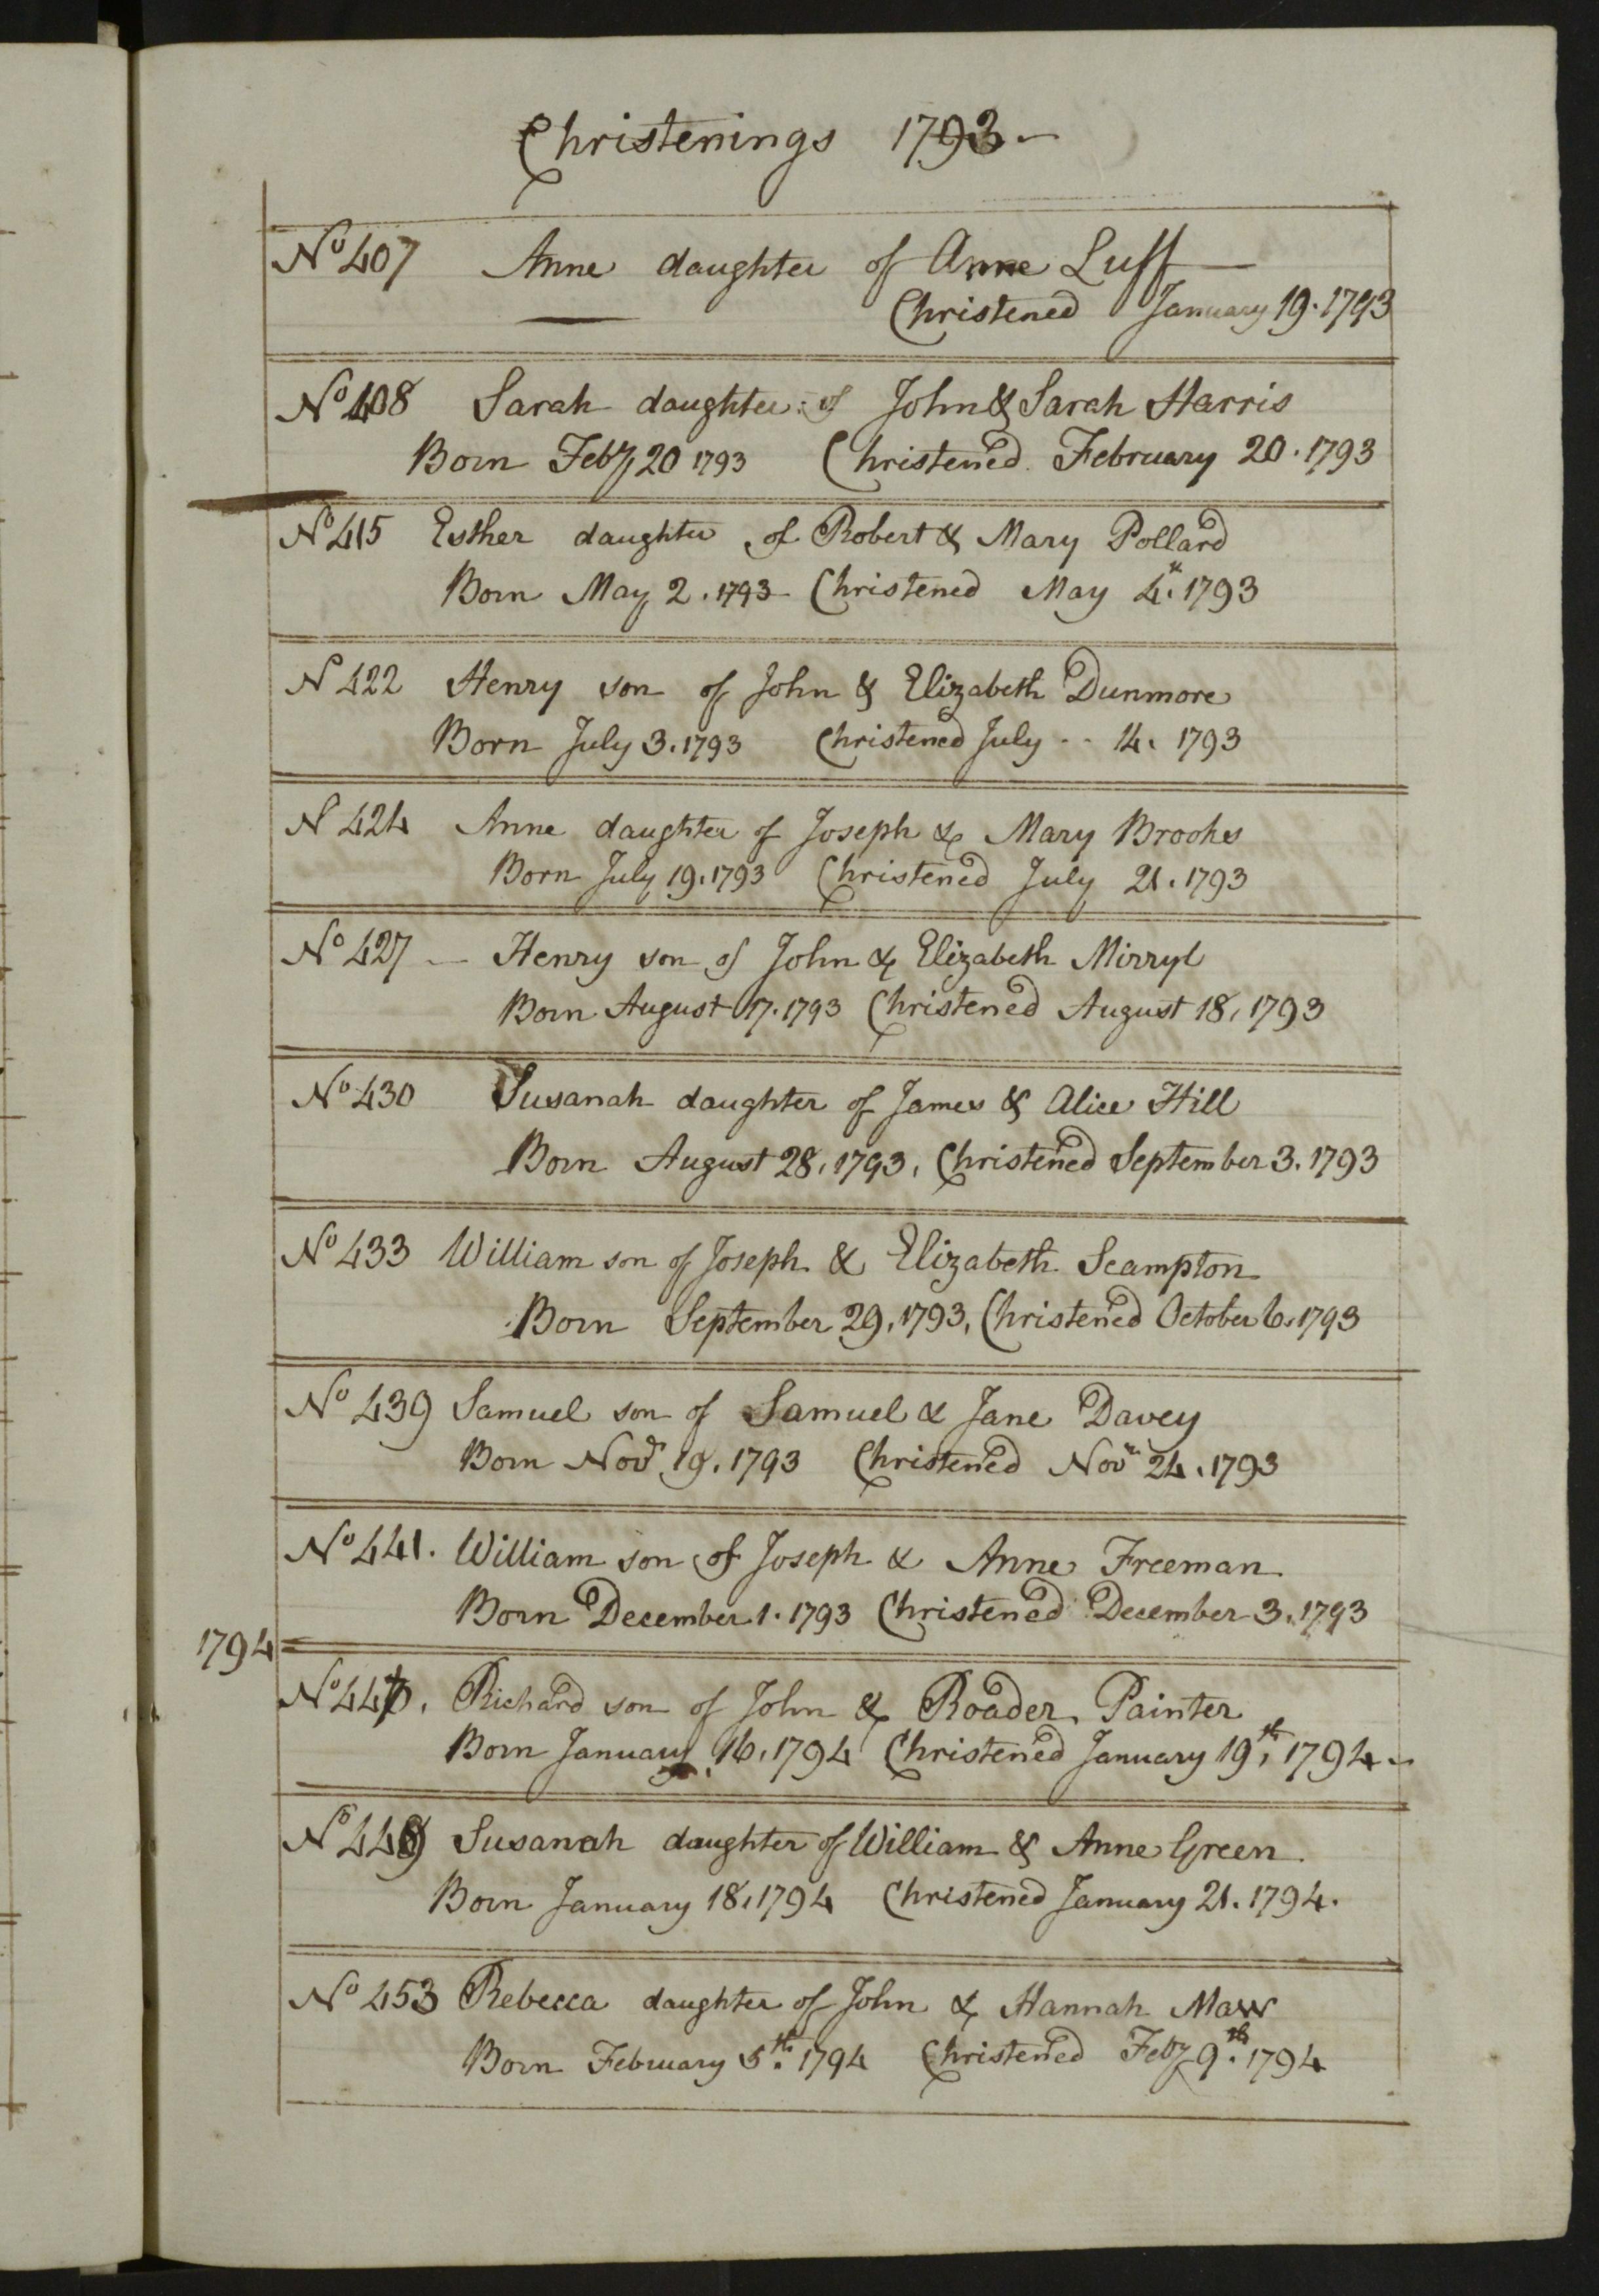 Christenings 1793 -
No 407 Anne daughter of Anne Luff
Christened January 19. 1793
No 408 Sarah daughter of John & Sarah Harris
Born Feby 20 1793 Christened February 20. 1793
No 415 Esther daughter of Robert & Mary Pollard
Born May 2. 1793 Christened May 4th. 1793
N 422 Henry son of John & Elizabeth Dunmore
Born July 3. 1793 Christened July - - 14. 1793
N 424 Anne daughter of Joseph & Mary Brookes
Born July 19. 1793 Christened July 21. 1793
No 427 - Henry son of John & Elizabeth Mirryl
Born August 17. 1793 Christened August 18, 1793
No 430 Susanah daughter of James & Alice Hill
Born August 28, 1793, Christened September 3. 1793
No 433 William son of Joseph & Elizabeth Scampton
Born September 29, 1793, Christened October 6, 1793
No 439 Samuel son of Samuel & Jane Davey
Born Novr 19. 1793 Christened Novr 24. 1793
No 441. William son of Joseph & Anne Freeman
Born December 1. 1793 Christened December 3. 1793
1794
Richard son of John & Roader Painter
Born January 16, 1794 Christened January 19th, 1794 -
No 449 Susanah daughter of William & Anne Green.
Born January 18, 1794 Christened January 21. 1794.
No 453 Rebecca daughter of John & Hannah Maw
Born February 5th. 1794 Christened Feby 9th. 1794